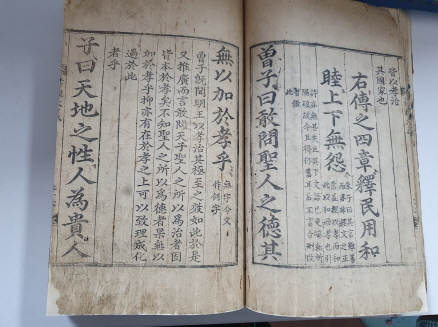 皆以孝治
其國家也
右傳之四章釋民用和
睦上下無怨
曾子曰敢問聖人之德其
無以加於孝乎
無字今文
作何字
曾子旣聞明王以孝治其極至之效如此於是
又推廣而言敢問天子聖人之所以爲治者固
皆本於孝矣不知聖人之所以爲德者果無以
加於孝乎抑亦有在於孝之上可以致理成化
過於此
者乎
子曰天地之性人為貴人